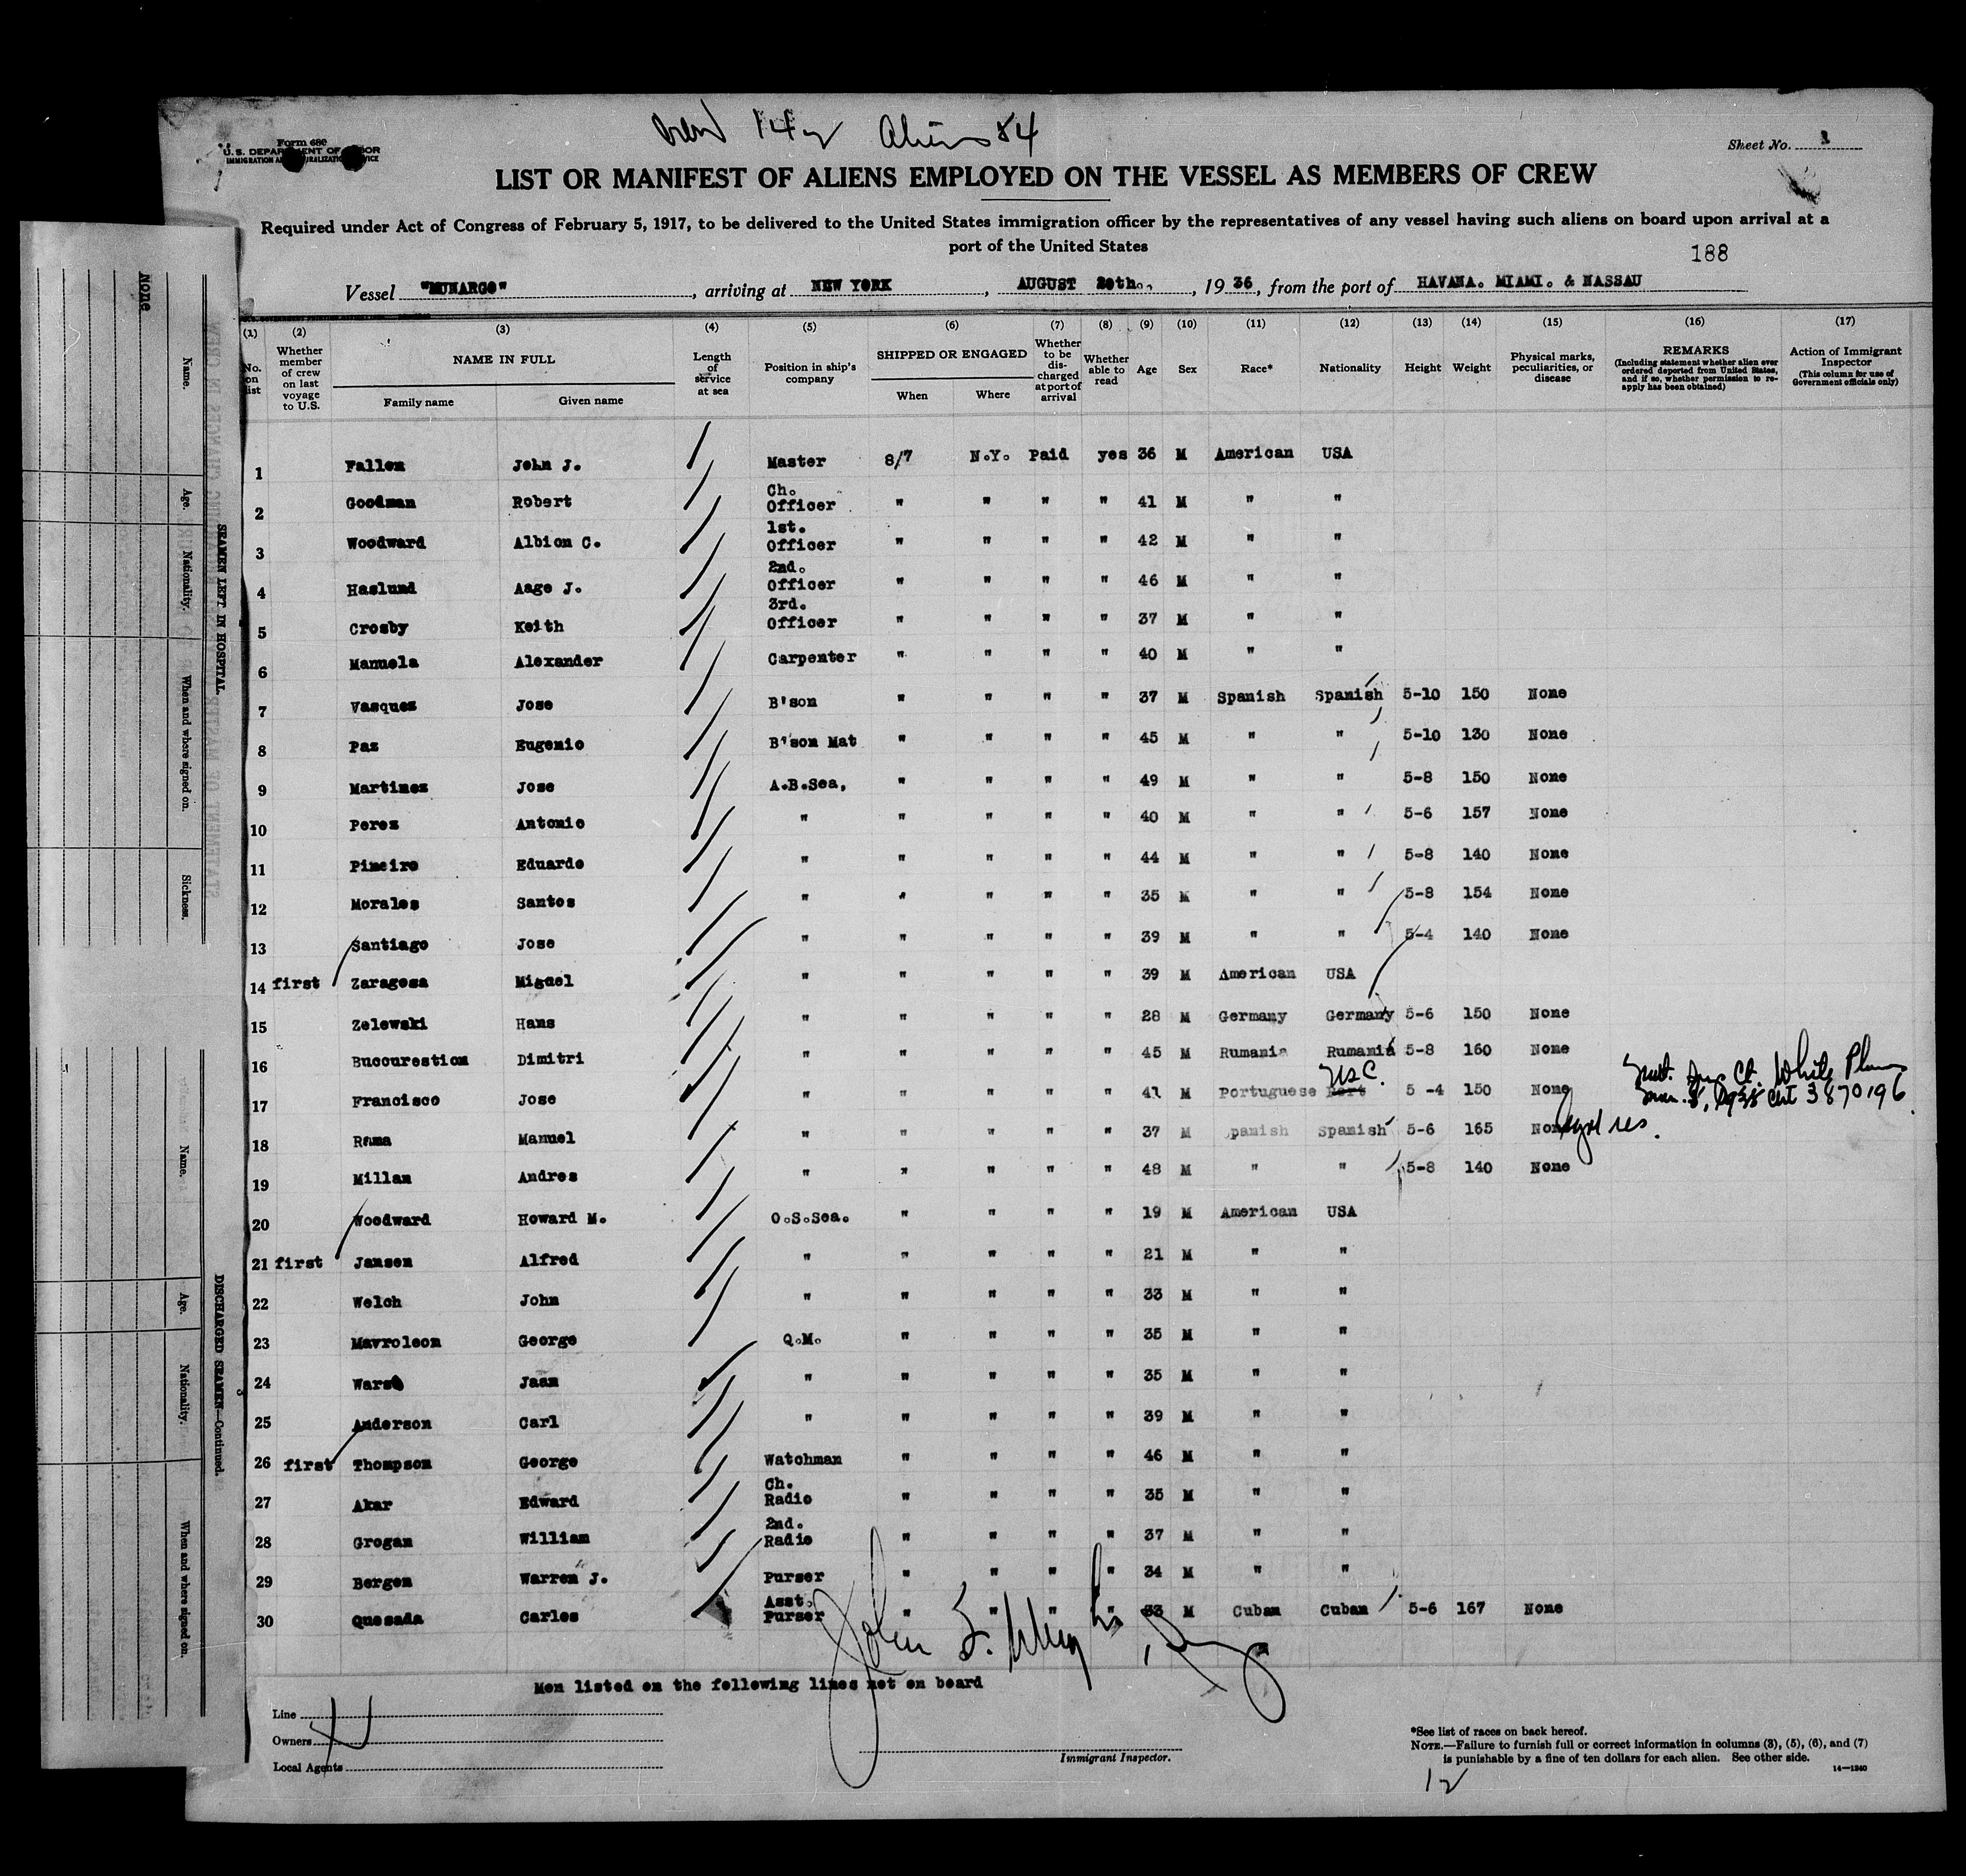 Crew 142 Aliens 84
Form 680
U. S. DEPARTMENT OF LABOR
IMMIGRATION AND NATURALIZATION SERVICE
Sheet No. 1
LIST OR MANIFEST OF ALIENS EMPLOYED ON THE VESSEL AS MEMBERS OF CREW
Required under Act of Congress of February 5, 1917, to be delivered to the United States immigration officer by the representatives of any vessel having such aliens on board upon arrival at a
port of the United States
188
Vessel "MUNARGO", arriving at NEW YORK, AUGUST 20th., 1936, from the port of HAVANA. MIAMI. & NASSAU
(1) (2) (3) (4) (5) (6) (7) (8) (9) (10) (11) (12) (13) (14) (15) (16) (17)
No. on list
Whether member of crew on last voyage to U.S.
NAME IN FULL
Family name Given name
Length of service at sea
Position in ship's company
SHIPPED OR ENGAGED
When Where
Whether to be discharged at port of arrival
Whether able to read
Age
Sex
Race*
Nationality
Height
Weight
Physical marks, peculiarities, or disease
REMARKS
(Including statement whether alien ever ordered deported from United States, and if so, whether permission to reapply has been obtained)
Action of Immigrant Inspector
(This column for use of Government officials only)
1 Fallon John J. Master 8/7 N.Y. Paid yes 36 M American USA
2 Goodman Robert Ch. Officer " " " " 41 M " "
3 Woodward Albion C. 1st. Officer " " " " 42 M " "
4 Haslund Aage J. 2nd. Officer " " " " 46 M " "
5 Crosby Keith 3rd. Officer " " " " 37 M " "
6 Manuela Alexander Carpenter " " " " 40 M " "
7 Vasquez Jose B'son " " " " 37 M Spanish Spanish 5-10 150 None
8 Paz Eugenio B'son Mat " " " " 45 M " " 5-10 130 None
9 Martinez Jose A.B.Sea, " " " " 49 M " " 5-8 150 None
10 Perez Antonio " " " " " 40 M " " 5-6 157 None
11 Pineiro Eduardo " " " " " 44 M " " 5-8 140 None
12 Morales Santos " " " " " 35 M " " 5-8 154 None
13 Santiago Jose " " " " " 39 M " " 5-4 140 None
14 first Zaragosa Miguel " " " " " 39 M American USA
15 Zelewski Hans " " " " " 28 M Germany Germany 5-6 150 None
16 Buccurestion Dimitri " " " " " 45 M Rumania Rumania 5-8 160 None
17 Francisco Jose " " " " " 41 M Portuguese Port USC. 5 -4 150 None Ct. White Plains Cert 3870196
18 Rama Manuel " " " " " 37 M Spanish Spanish 5-6 165 None legal res.
19 Millan Andres " " " " " 48 M " " 5-8 140 None
20 Woodward Howard M. O.S.Sea. " " " " 19 M American USA
21 first Jansen Alfred " " " " " 21 M " "
22 Welch John " " " " " 33 M " "
23 Mavroleon George Q.M. " " " " 35 M " "
24 Jaan " " " " " 35 M " "
25 Anderson Carl " " " " " 39 M " "
26 first Thompson George Watchman " " " " 46 M " "
27 Akar Edward Ch. Radio " " " " 35 M " "
28 Grogan William 2nd. Radio " " " " 37 M " "
29 Bergen Warren J. Purser " " " " 34 M " "
30 Quesada Carlos Asst. Purser " " " " 33 M Cuban Cuban 5-6 167 None
Men listed on the following lines not on board
Line
Owners
Local Agents
Immigrant Inspector.
*See list of races on back hereof.
NOTE.—Failure to furnish full or correct information in columns (3), (5), (6), and (7)
is punishable by a fine of ten dollars for each alien. See other side.
14—1240
12
None
Name.
Age.
Nationality.
When and where signed on.
Sickness.
SEAMEN LEFT IN HOSPITAL.
Name.
Age.
Nationality.
When and where signed on.
DISCHARGED SEAMEN—Continued.